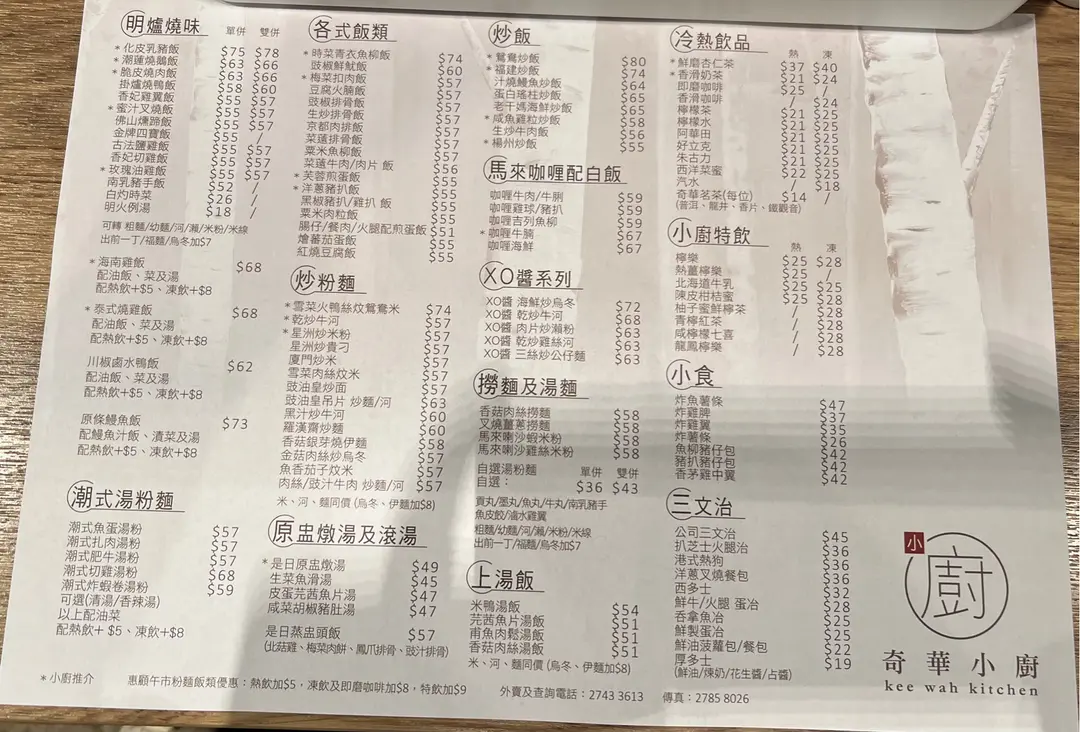 明爐燒味 單併 雙併
*化皮乳豬飯 $75 $78
*潮蓮燒鵝飯 $63 $66
*脆皮燒肉飯 $63 $66
掛爐燒鴨飯 $58 $60
香妃雞翼飯 $55 $57
*蜜汁叉燒飯 $55 $57
佛山燻蹄飯 $55 $57
金牌四寶飯 $55
古法鹽雞飯 $55 $57
香妃切雞飯 $55 $57
*玫瑰油雞飯 $55 $57
南乳豬手飯 $52 /
白灼時菜 $26 /
明火例湯 $18 /
可轉 粗麵/幼麵/河/瀨/米粉/米線
出前一丁/福麵/烏冬加$7
*海南雞飯 $68
配油飯、菜及湯
配熱飲+$5、凍飲+$8
*泰式燒雞飯 $68
配油飯、菜及湯
配熱飲+$5、凍飲+$8
川椒鹵水鴨飯 $62
配油飯、菜及湯
配熱飲+$5、凍飲+$8
原條鰻魚飯 $73
配鰻魚汁飯、漬菜及湯
配熱飲+$5、凍飲+$8
潮式湯粉麵
潮式魚蛋湯粉 $57
潮式扎肉湯粉 $57
潮式肥牛湯粉 $57
潮式切雞湯粉 $68
潮式炸蝦卷湯粉 $59
可選(清湯/香辣湯)
以上配油菜
配熱飲+ $5、凍飲+$8
各式飯類
*時菜青衣魚柳飯 $74
豉椒鮮魷飯 $60
*梅菜扣肉飯 $57
豆腐火腩飯 $55
豉椒排骨飯 $55
生炒排骨飯 $55
京都肉排飯 $55
菜薳排骨飯 $55
粟米魚柳飯 $55
菜薳牛肉/肉片 飯 $56
*芙蓉煎蛋飯 $55
*洋蔥豬扒飯 $55
黑椒豬扒/雞扒 飯 $55
粟米肉粒飯 $55
腸仔/餐肉/火腿配煎蛋飯 $51
燴蕃茄蛋飯 $55
紅燒豆腐飯 $55
炒粉麵
*雪菜火鴨絲炆鴛鴦米 $74
*乾炒牛河 $57
*星洲炒米粉 $57
星洲炒貴刁 $57
廈門炒米 $57
雪菜肉絲炆米 $57
豉油皇炒面 $57
豉油皇吊片 炒麵/河 $63
黑汁炒牛河 $60
羅漢齋炒麵 $60
香菇銀芽燒伊麵 $58
金菇肉絲炒烏冬 $57
魚香茄子炆米 $57
肉絲/豉汁牛肉 炒麵/河 $57
米、河、麵同價 (烏冬、伊麵加$8)
原盅燉湯及滾湯
*是日原盅燉湯 $49
生菜魚滑湯 $45
皮蛋芫茜魚片湯 $47
咸菜胡椒豬肚湯 $47
是日蒸盅頭飯 $57
(北菇雞、梅菜肉餅、鳳爪排骨、豉汁排骨)
炒飯
*鴛鴦炒飯 $80
*福建炒飯 $74
汁燒鰻魚炒飯 $64
蛋白瑤柱炒飯 $65
老干媽海鮮炒飯 $65
*咸魚雞粒炒飯 $58
生炒牛肉飯 $56
*楊州炒飯 $55
馬來咖喱配白飯
咖喱牛肉/牛脷 $59
咖喱雞球/豬扒 $59
咖喱吉列魚柳 $59
*咖喱牛腩 $67
咖喱海鮮 $67
XO醬系列
XO醬 海鮮炒烏冬 $72
XO醬 乾炒牛河 $68
XO醬 肉片炒瀨粉 $63
XO醬 乾炒雞絲河 $63
XO醬 三絲炒公仔麵 $63
撈麵及湯麵
香菇肉絲撈麵 $58
叉燒薑蔥撈麵 $58
馬來喇沙蝦米粉 $58
馬來喇沙雞絲米粉 $58
自選湯粉麵 單併 雙併
自選： $36 $43
貢丸/墨丸/魚丸/牛丸/南乳豬手
魚皮餃/滷水雞翼
粗麵/幼麵/河/瀨/米粉/米線
出前一丁/福麵/烏冬加$7
上湯飯
米鴨湯飯 $54
芫茜魚片湯飯 $51
甫魚肉鬆湯飯 $51
香菇肉絲湯飯 $51
米、河、麵同價 (烏冬、伊麵加$8)
冷熱飲品 熱 凍
*鮮磨杏仁茶 $37 $40
*香滑奶茶 $21 $24
即磨咖啡 $25 /
香滑咖啡 / $24
檸檬茶 $21 $25
檸檬水 $21 $25
阿華田 $21 $25
好立克 $21 $25
朱古力 $21 $25
西洋菜蜜 $22 $25
汽水 / $18
奇華茗茶(每位) $14 /
(普洱、龍井、香片、鐵觀音)
小廚特飲 熱 凍
檸樂 $25 $28
熱薑檸樂 $25 /
北海道牛乳 $25 $25
陳皮柑桔蜜 $25 $28
柚子蜜鮮檸茶 / $28
青檸紅茶 / $28
咸檸檬七喜 / $28
龍鳳檸樂 / $28
小食
炸魚薯條 $47
炸雞脾 $37
炸雞翼 $35
炸薯條 $26
魚柳豬仔包 $42
豬扒豬仔包 $42
香茅雞中翼 $42
三文治
公司三文治 $45
扒芝士火腿治 $36
港式熱狗 $36
洋蔥叉燒餐包 $36
西多士 $32
鮮牛/火腿 蛋冶 $28
吞拿魚冶 $25
鮮製蛋冶 $25
鮮油菠蘿包/餐包 $22
厚多士 $19
(鮮油/煉奶/花生醬/占醬)
小
廚
奇華小廚
kee wah kitchen
*小廚推介 惠顧午市粉麵飯類優惠：熱飲加$5，凍飲及即磨咖啡加$8，特飲加$9 外賣及查詢電話：2743 3613 傳真：2785 8026